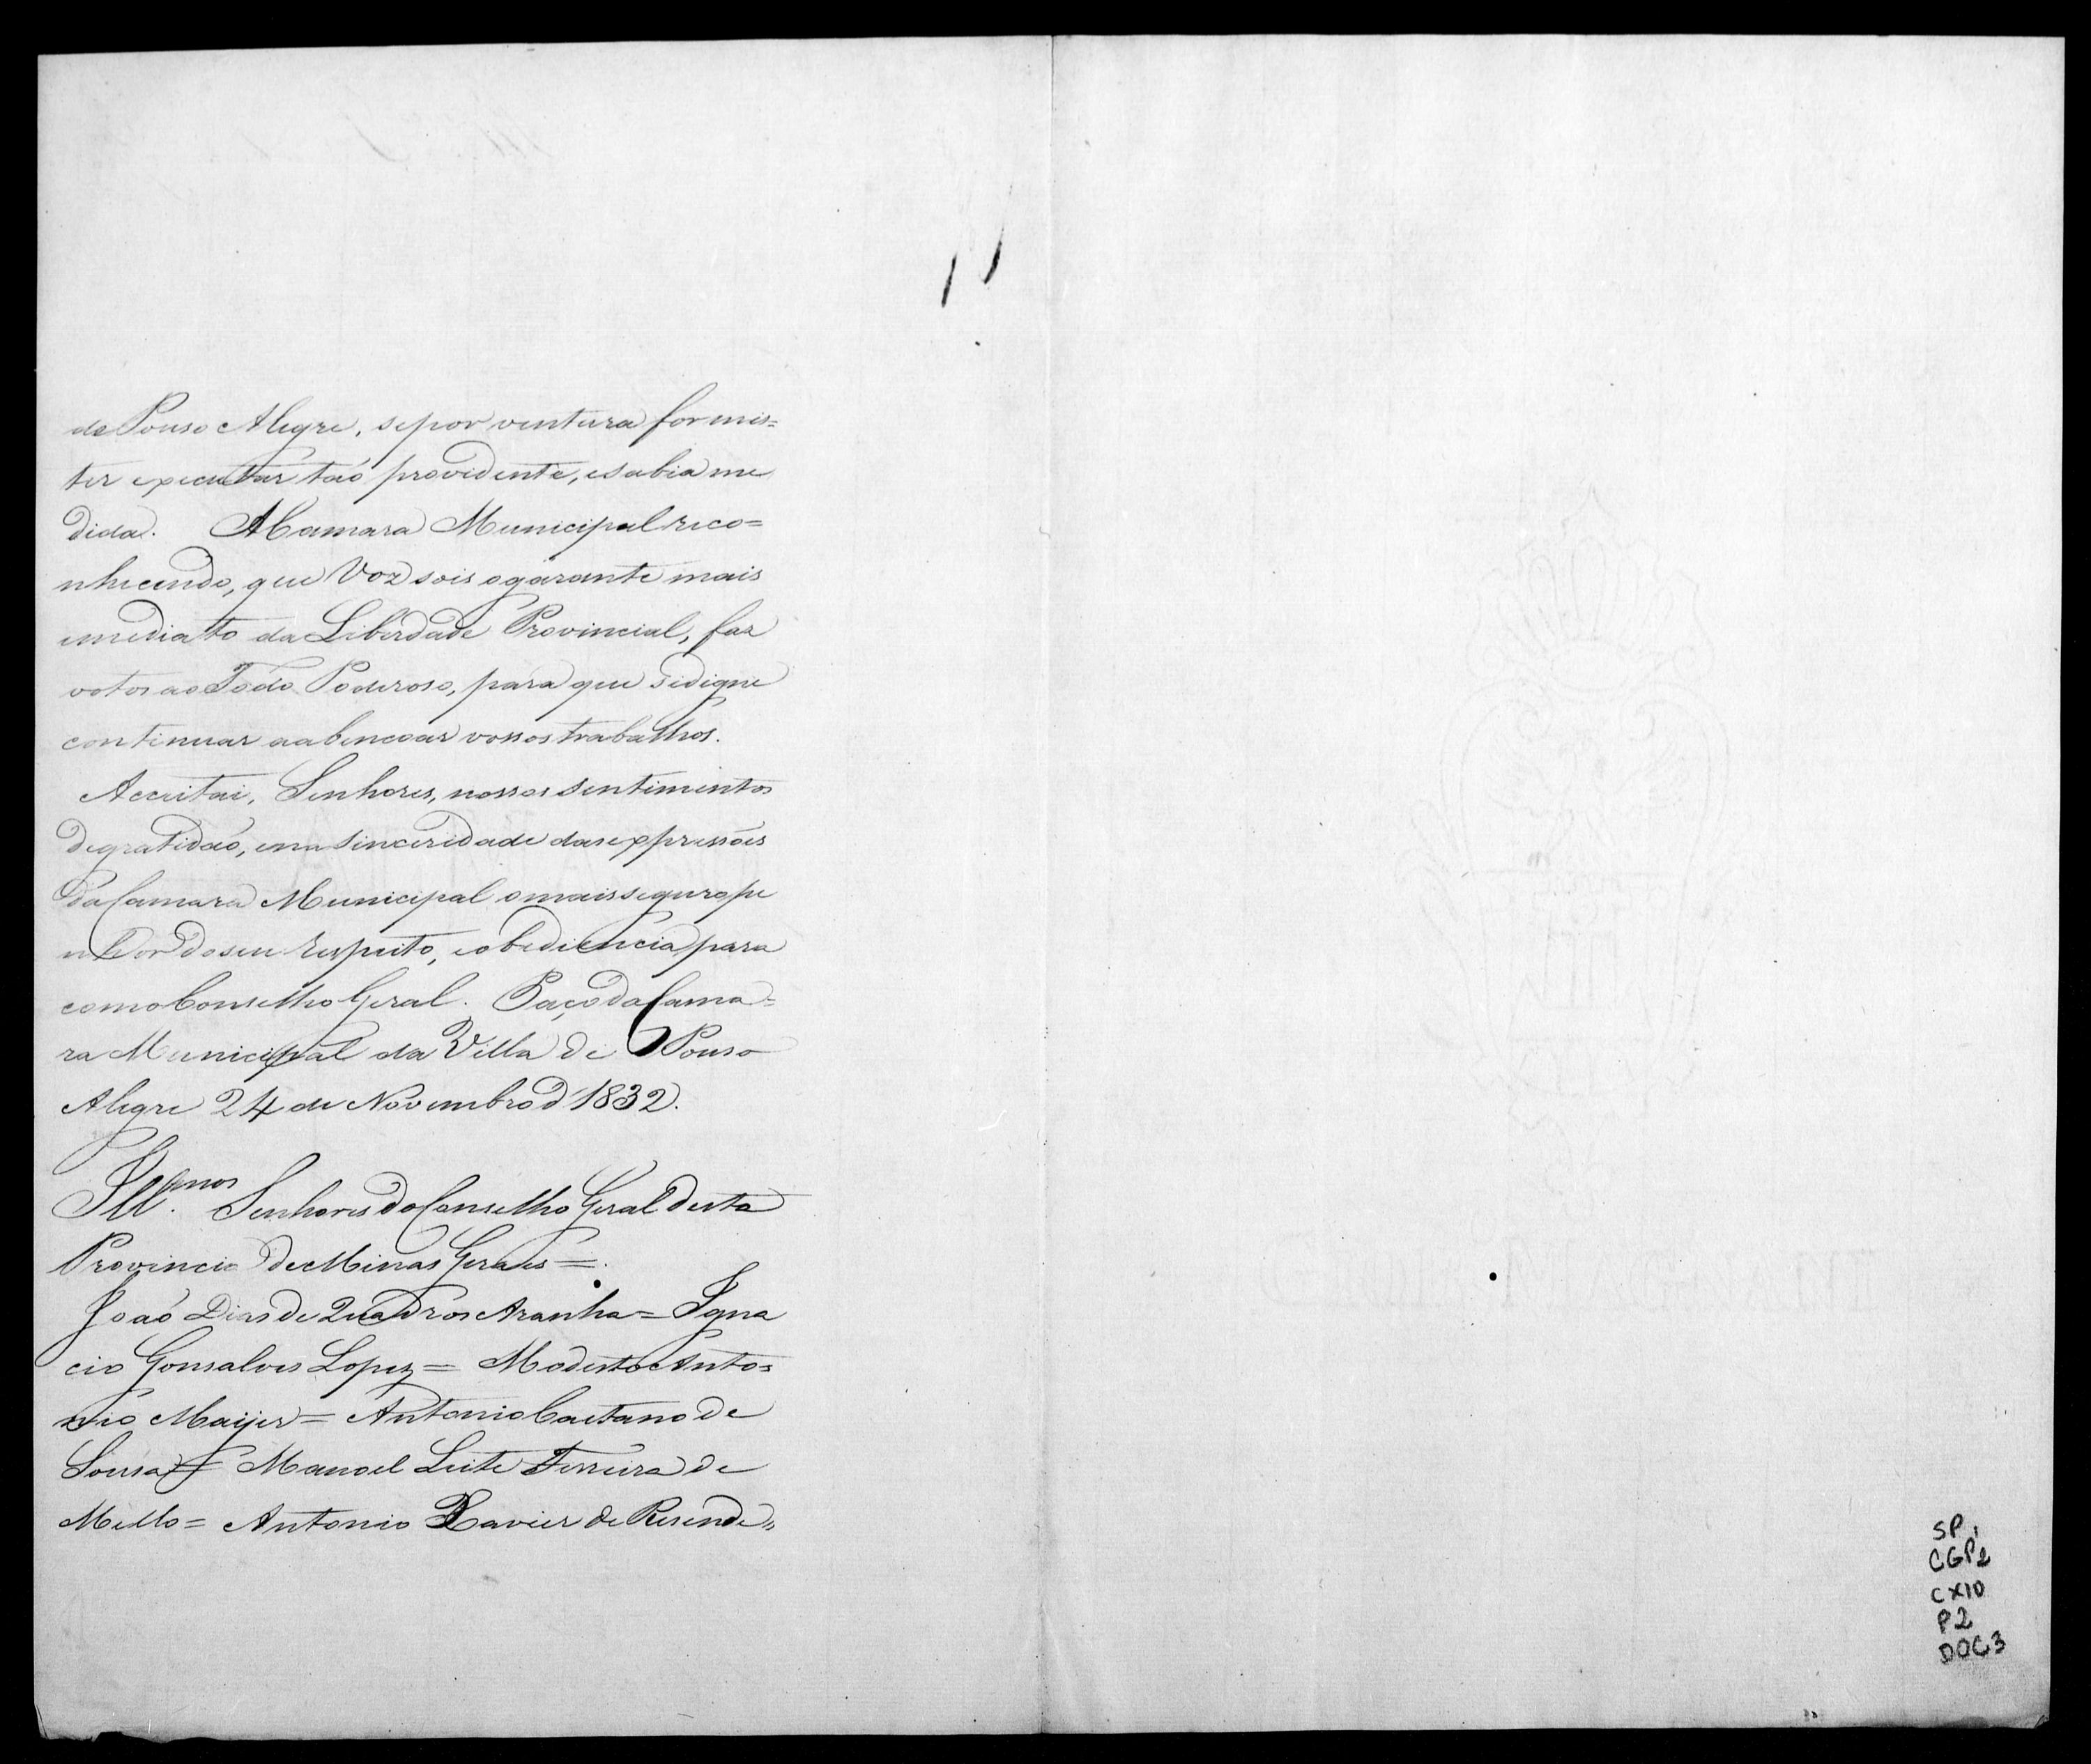 de Pouso Alegre, se por ventura for mis=
ter executar taõ providente, e sabia me
dida. A Camara Municipal reco=
nhecendo, que Voz sois o garante mais
imediato da Liberdade Provincial, faz
votos ao Todo Poderoso, para que se digne
continuar a abencoar vossos trabalhos.
Acceitai, Senhores, nossos sentimentos
de gratidaõ, e na sinceridade das expressões
da Camara Municipal o mais seguro pe
nhor do seu respeito, e obediencia para
com o Conselho Geral. Paço da Cama=
ra Municipal da Villa de Pouso
Alegre 24 de Novembro d 1832.
Ill.mos Senhores do Conselho Geral desta
Provincia de Minas Geraes =.
Joaõ Dias de Quadros Aranha = Igna
cio Gonsalves Lopez = Modesto Anto=
nio Maijer = Antonio Caetano de
Sousa = Manoel Leite Ferreira de
Mello = Antonio Xavier de Resende„
SP,
CGP1
CX10
P2
DOC3